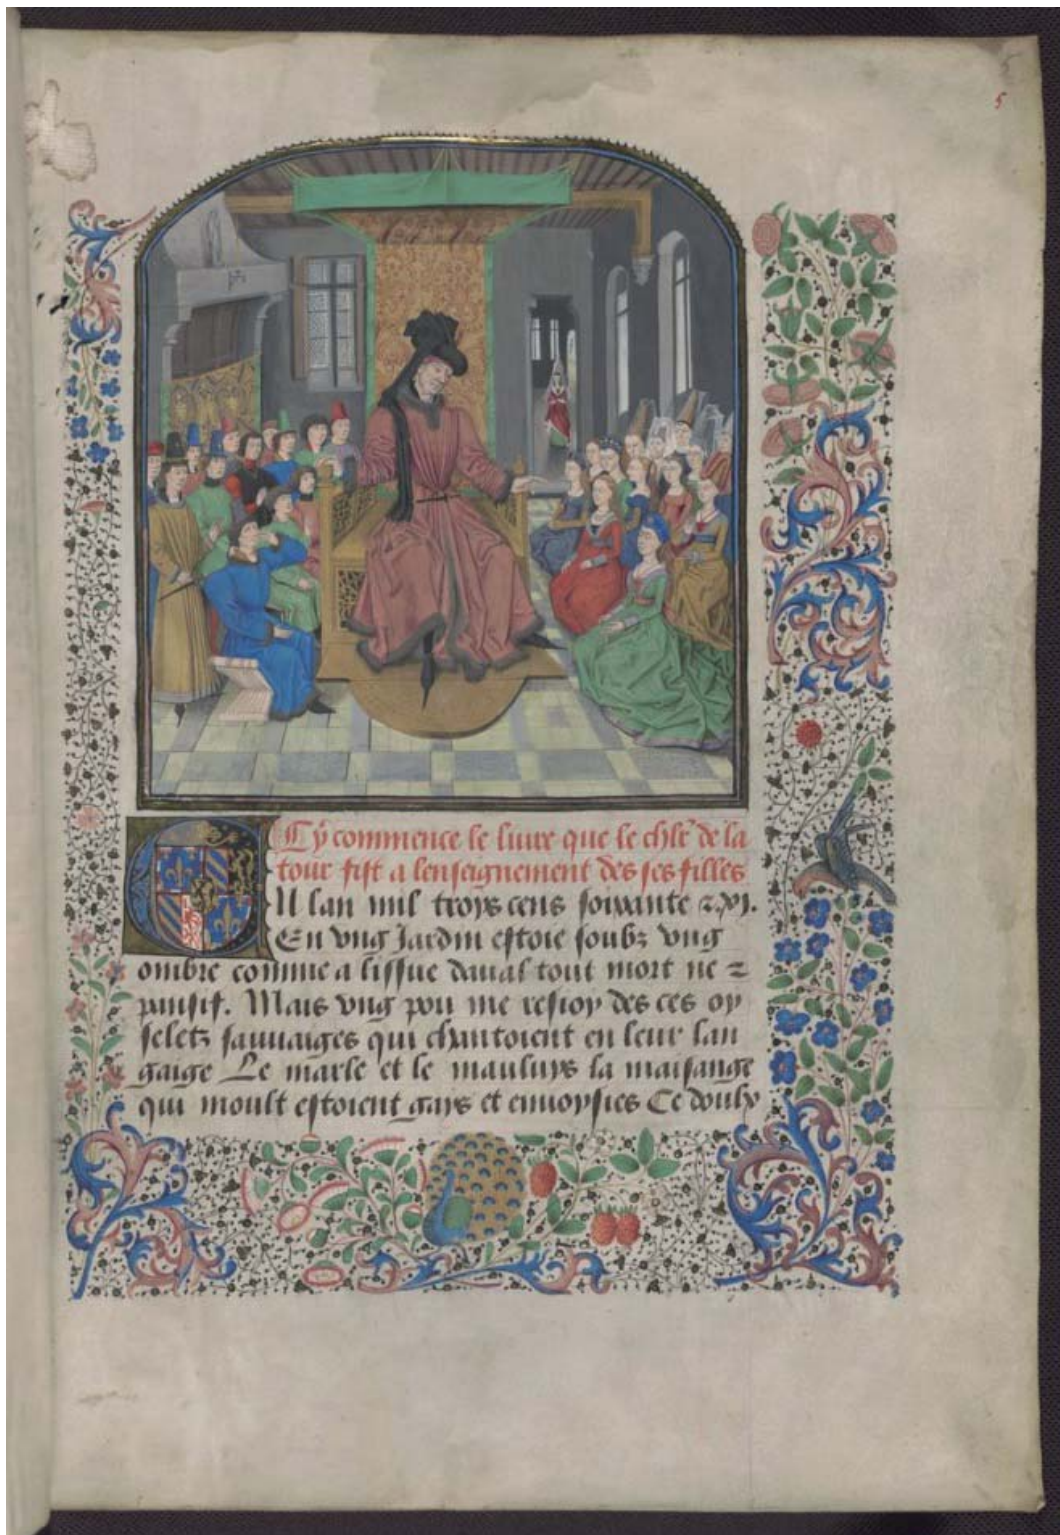 5
Cy commence le liure que le chlr̄ de la
tour fist a lenseignement des ses filles
El lan mil troys cens soixante ⁊ xj.
En vng Jardin estoie soubz vng
ombre comme a lissue daual tout mort ne ⁊
pansif. Mais vng pou me resioy des ces oy
seletz sauuaiges qui chantoient en leur lan
gaige Le marle et le mauluys la maisange
qui moult estoient gays et enuoysies Ce doulx